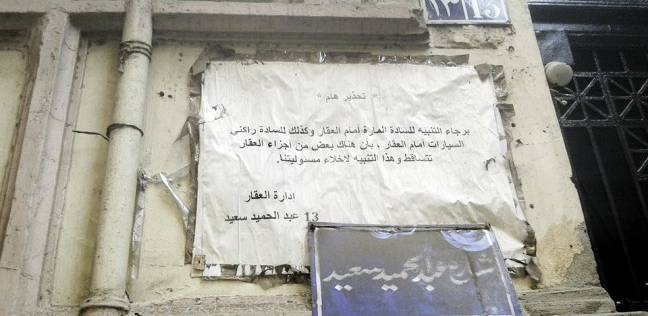 ١٣ 13
" تحذير هام "
برجاء التنبيه للسادة المارة أمام العقار وكذلك للسادة راكني
السيارات أمام العقار ، بأن هناك بعض من أجزاء العقار
تتساقط وهذا التنبيه لاخلاء مسئوليتنا.
ادارة العقار
13 عبد الحميد سعيد
شارع عبد الحميد سعيد